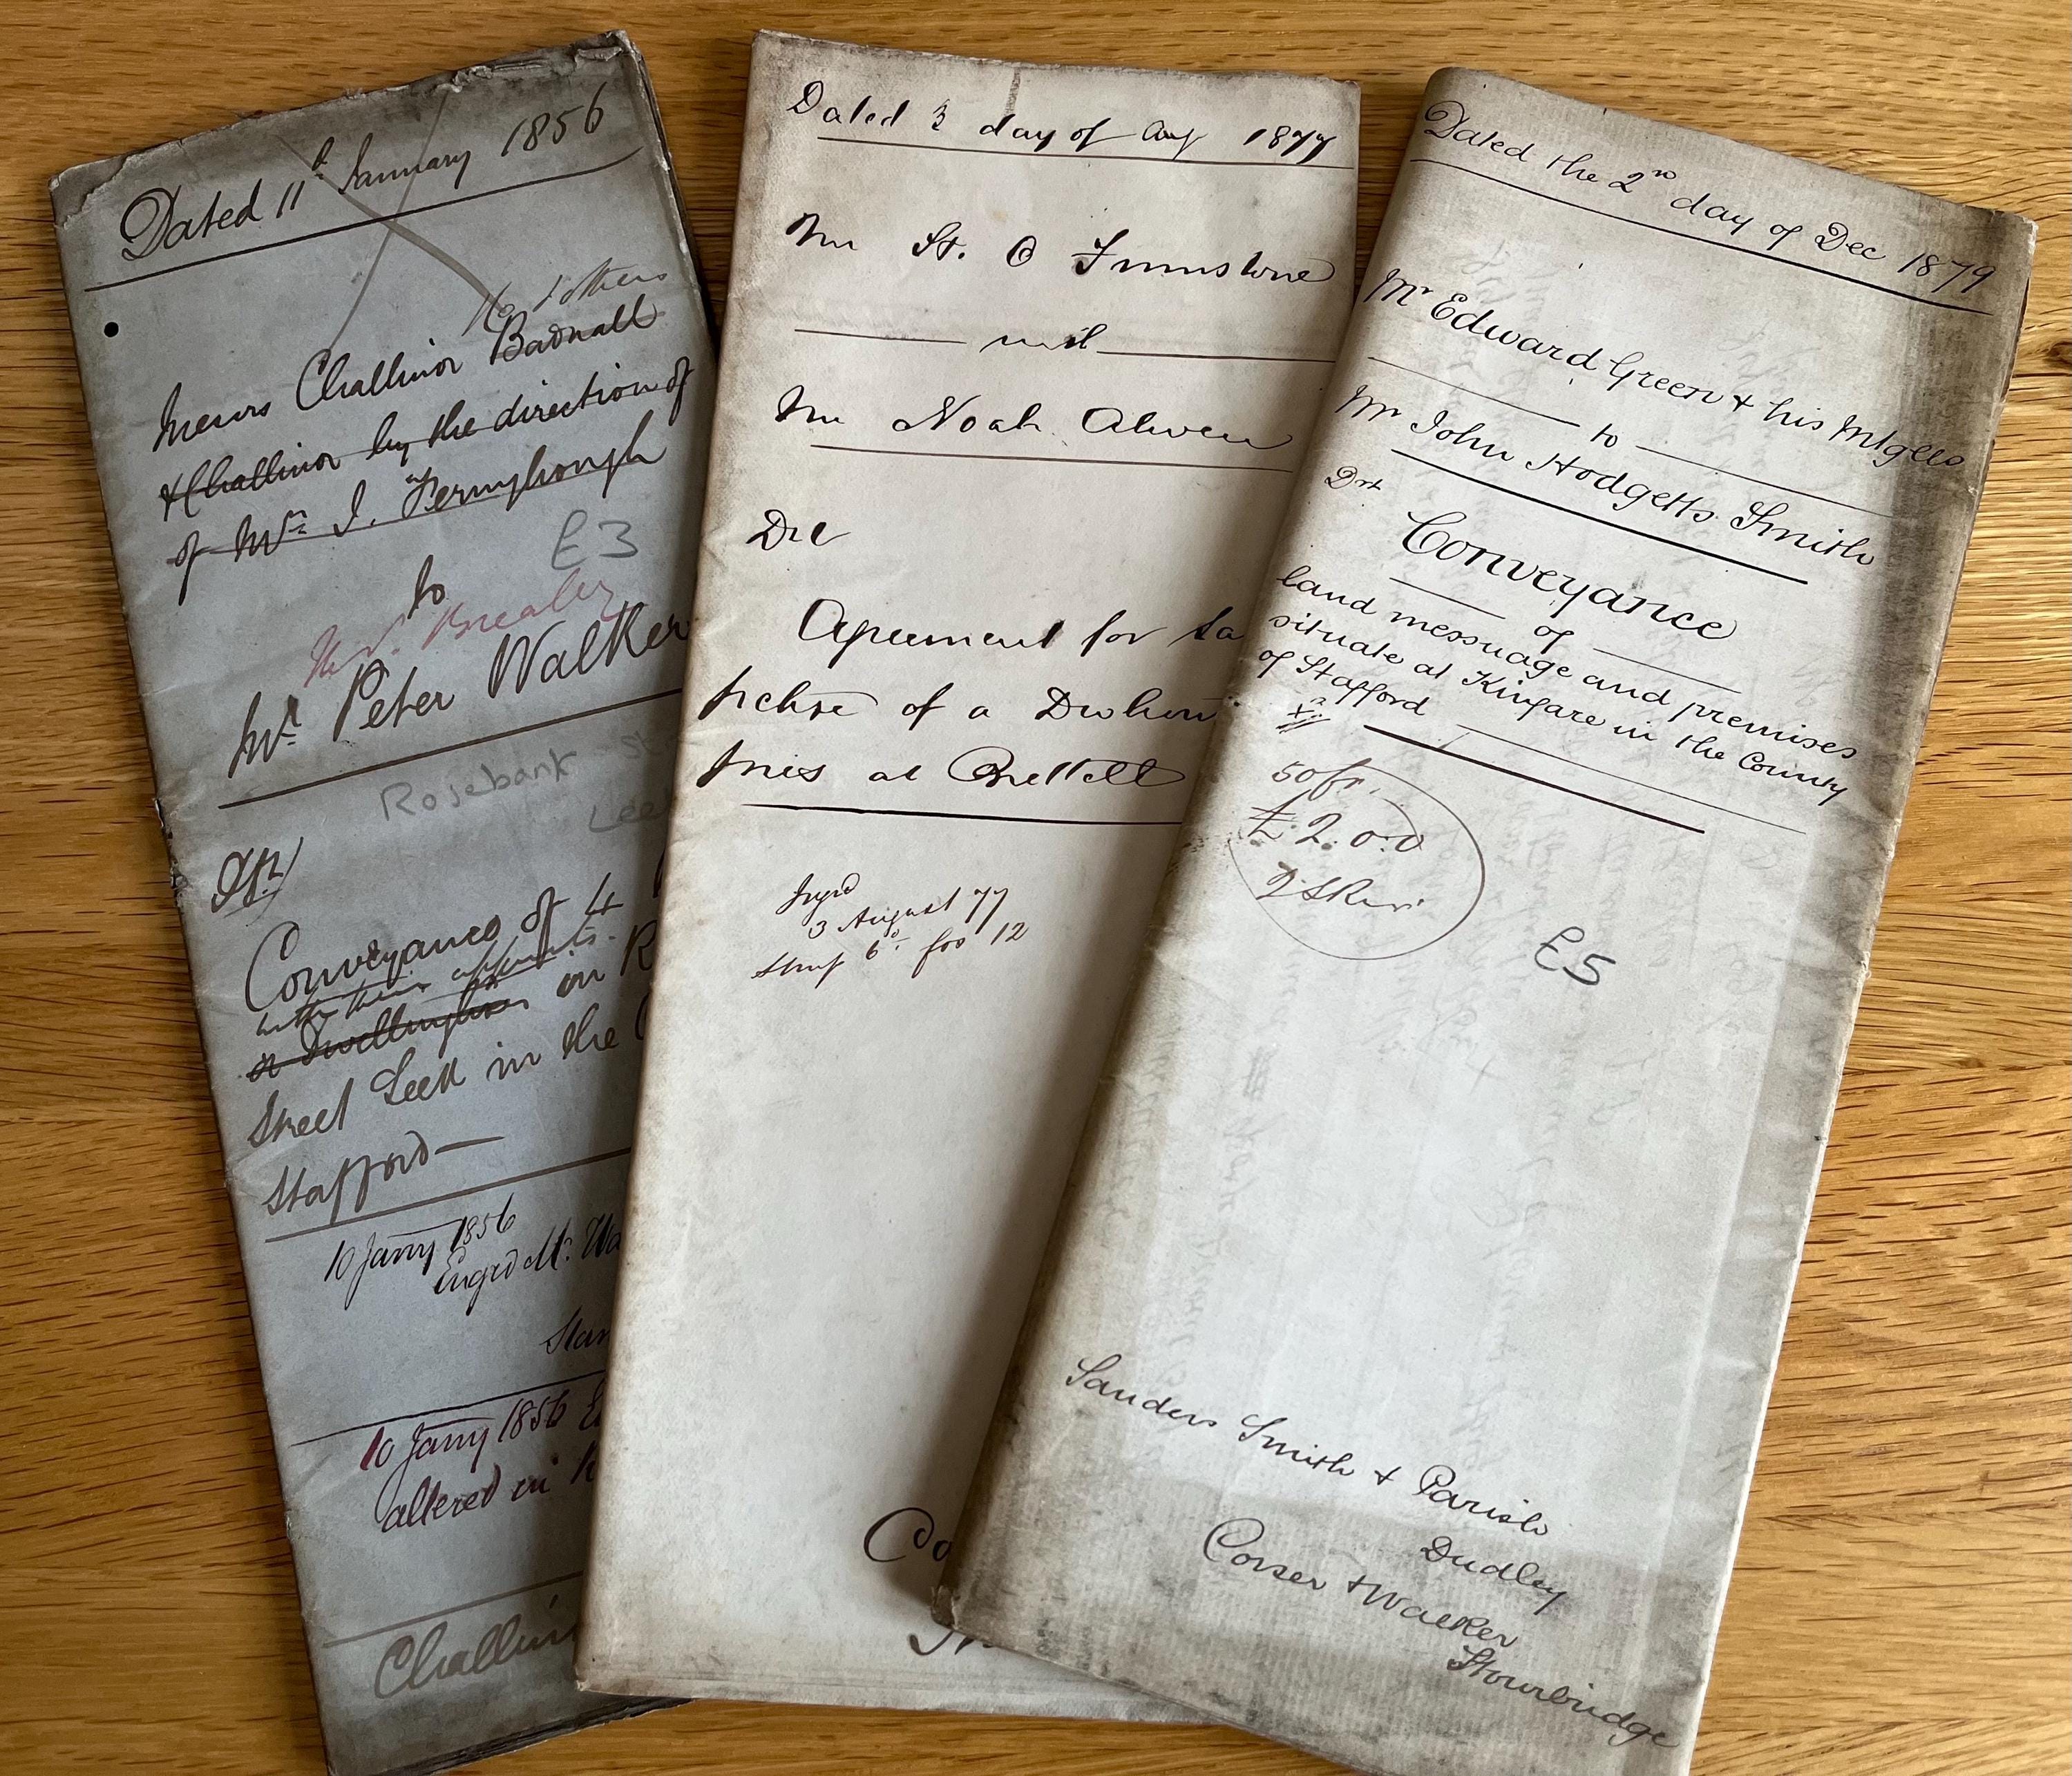 Dated 11th January 1856
& others
Messrs Challinor Badnall
& Challinor by the direction of
of Mrs J. Fernyhough
£3
to
Mr. Brealey
Mr. Peter Walker
Rosebank St
Lee
Conveyance of 4
with their appurts.
a Dwellinghse on R
Street Leek in the
Stafford
10 Janry 1856
Engrd Mr. Wa
Stam
10 Janry 1856 E
altered in
Challin
Dated 3 day of Aug 1877
Mr
with
Mr Noah
Agreement for Sa
pchse of a Dwhou
mis at Brettell
Ingrd
3 August 77
Stmp 6d. foo 12
Co
Dated the 2nd day of Dec 1879
Mr Edward Green & his Mtgees
to
Mr John Hodgetts Smith
Drt
Conveyance
of
land messuage and premises
situate at Kinfare in the County
of Stafford
50 fo.
£2.0.0
£5
Sanders Smith & Parish
Dudley
Corser & Walker
Stourbridge